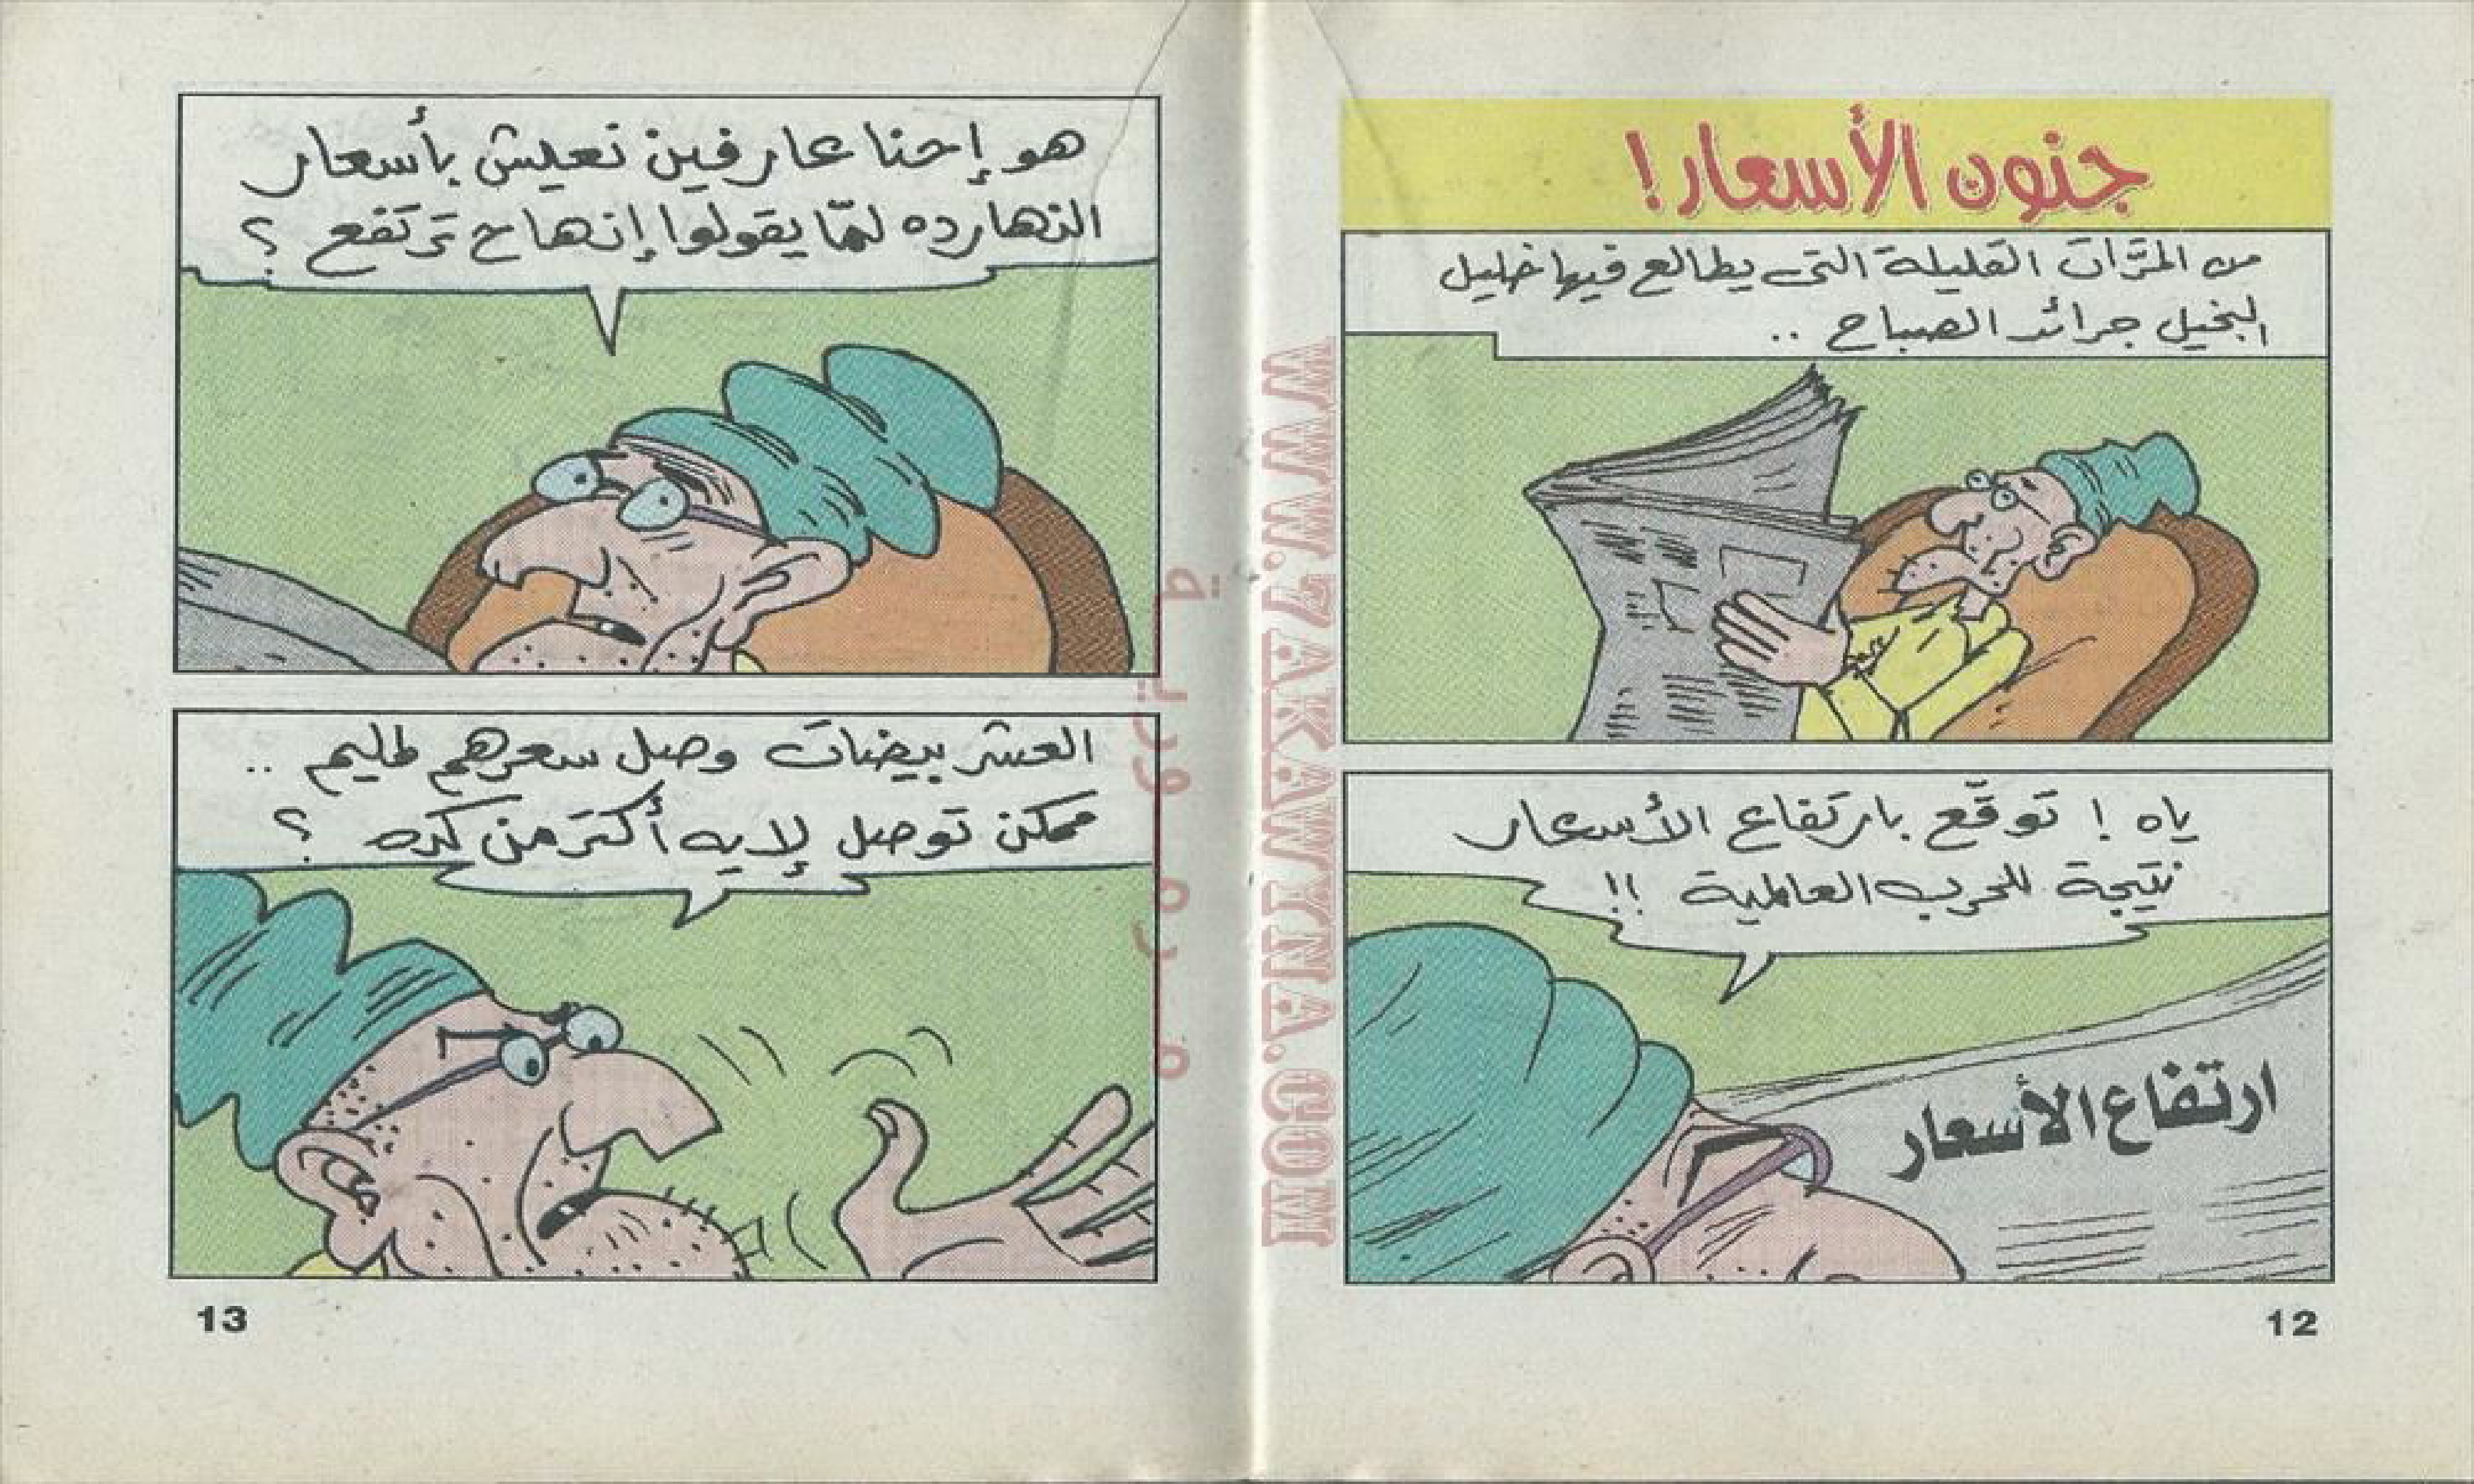 جنون الأسعار!
من المرّات القليلة التى يطالع فيها خليل
البخيل جرائد الصباح ..
ياه ! توقّع بارتفاع الأسعار
نتيجة للحرب العالمية !!
ارتفاع الأسعار
12
هو إحنا عارفين نعيش بأسعار
النهارده لمّا يقولوا إنها ح ترتفع ؟
العشر بيضات وصل سعرهم لمليم ..
ممكن توصل لإيه أكتر من كده ؟
13
WWW.7AKAWYNA.COM